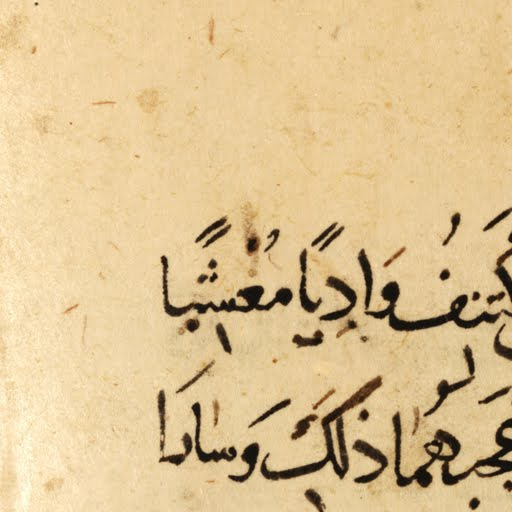 تكتنف وَادِيًا مُعْشِبًا
عجبهما ذَلِكَ وَسَارَا